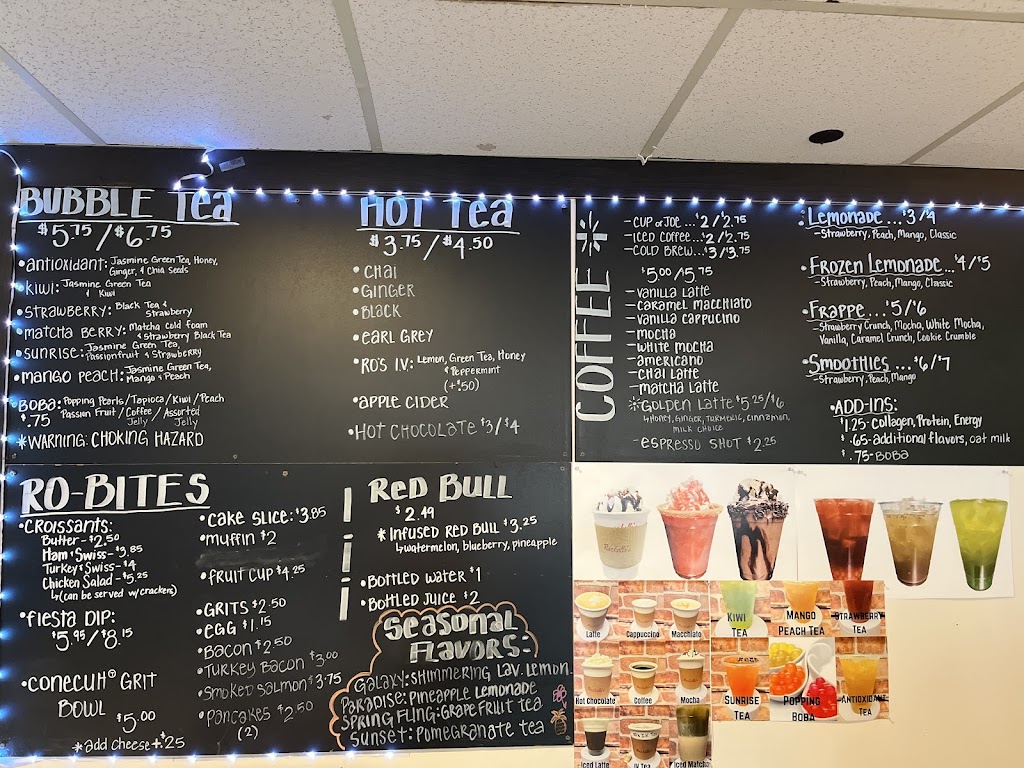 BUBBLE Tea
$5.75/$6.75
•antioxidant: Jasmine Green Tea, Honey,
Ginger, & Chia Seeds
•Kiwi: Jasmine Green Tea
& Kiwi
•Strawberry: Black Tea &
Strawberry
•matcha Berry: Matcha cold foam
& Strawberry Black Tea
•sunrise: Jasmine Green Tea,
Passionfruit & Strawberry
•mango Peach: Jasmine Green Tea,
Mango & Peach
BOBA: Popping Pearls/Tapioca/Kiwi/Peach
$.75 Passion Fruit/Coffee/Assorted
Jelly Jelly
*WARNING: CHOKING HAZARD
HOT Tea
$3.75/$4.50
•CHAI
•GINGER
•BLACK
•EARL GREY
•RO'S I.V.: Lemon, Green Tea, Honey
& Peppermint
(+$.50)
•APPLE CIDER
•HOT CHOCOLATE $3/$4
COFFEE
-CUP of JOE...$2/$2.75
-ICED COFFEE...$2/$2.75
-COLD BREW...$3/$3.75
$5.00/5.75
-VANILLA LATTE
-CARAMEL MACCHIATO
-VANILLA CAPPUCINO
-MOCHA
-WHITE MOCHA
-AMERICANO
-CHAI LATTE
-MATCHA LATTE
GOLDEN LATTE $5.25/$6
HONEY, GINGER, TURMERIC, CINNAMON,
MILK CHOICE
-ESPRESSO SHOT $2.25
•Lemonade...$3/4
-Strawberry, Peach, Mango, Classic
•Frozen Lemonade...$4/$5
-Strawberry, Peach, Mango, Classic
•Frappe...$5/$6
-Strawberry Crunch, Mocha, White Mocha,
Vanilla, Caramel Crunch, Cookie Crumble
•Smoothies...$6/$7
-Strawberry, Peach, Mango
•ADD-INS:
$1.25-Collagen, Protein, Energy
$.65-additional flavors, oat milk
$.75-BOBA
RO-BITES
•CROISSANTS:
Butter-$2.50
Ham & Swiss-$3.85
Turkey & Swiss-$4
Chicken Salad-$5.25
(can be served w/crackers)
•FIESTA DIP:
$5.95/$8.15
•CONECUH® GRIT
BOWL
$5.00
*add cheese +$.25
•CAKE SLICE: $3.85
•MUFFIN $2
•FRUIT CUP $4.25
•GRITS $2.50
•EGG $1.15
•BACON $2.50
•TURKEY BACON $3.00
•SMOKED SALMON $3.75
•PANCAKES $2.50
(2)
Red BULL
$2.49
*INFUSED RED BULL $3.25
watermelon, blueberry, pineapple
•BOTTLED WATER $1
•BOTTLED JUICE $2
SEASONAL
FLAVORS:
GALAXY: SHIMMERING LAV. LEMON.
PARADISE: PINEAPPLE LEMONADE
SPRING FLING: GRAPEFRUIT TEA
SUNSET: POMEGRANATE TEA
Latte
Cappuccino
Macchiato
Hot Chocolate
Coffee
Mocha
Iced Latte
IV Tea
Iced Matcha
KIWI
TEA
MANGO
PEACH TEA
STRAWBERRY
TEA
SUNRISE
TEA
POPPING
BOBA
ANTIOXIDANT
TEA